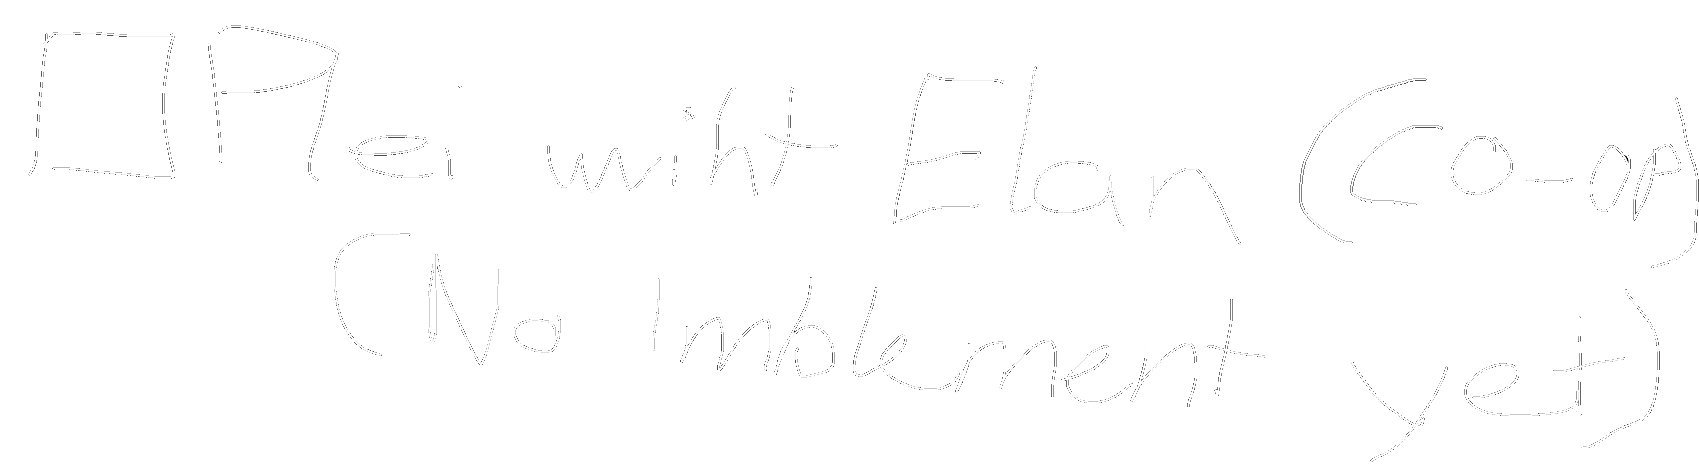 Plei wiht Elan (Co-op)
(No Imblement yet)